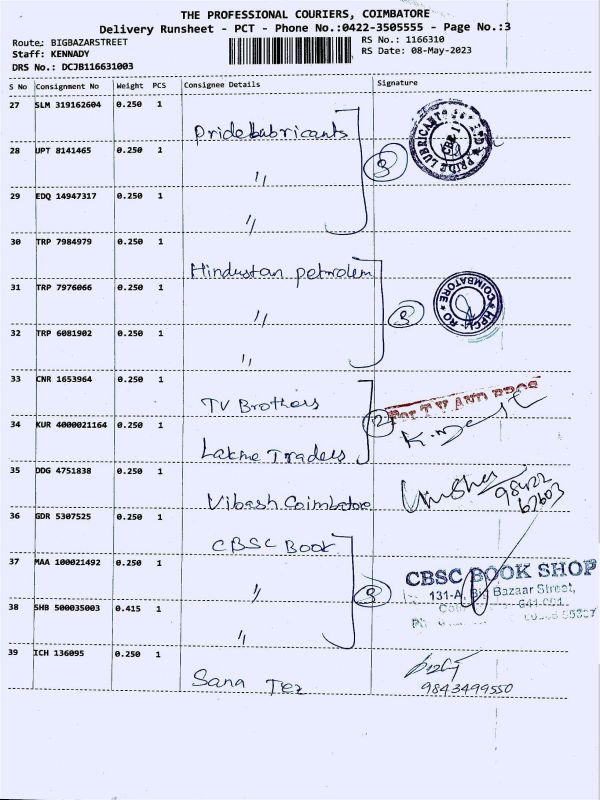 THE PROFESSIONAL COURIERS, COIMBATORE
Delivery Runsheet - PCT - Phone No.:0422-3505555 - Page No.:3
Route: BIGBAZARSTREET
Staff: KENNADY
DRS No.: DCJB116631003
RS No.: 1166310
RS Date: 08-May-2023
S No Consignment No Weight PCS Consignee Details Signature
27 SLM 319162604 0.250 1 Pride Lubricants
28 UPT 8141465 0.250 1 "
29 EDQ 14947317 0.250 1 "
3
PRIDE LUBRICANTS
30 TRP 7984979 0.250 1 Hindustan petrolem
31 TRP 7976066 0.250 1 "
32 TRP 6081902 0.250 1 "
3
HPCL RO COIMBATORE
33 CNR 1653964 0.250 1 TV Brothers
34 KUR 4000021164 0.250 1 Lakme Traders
2
For T V AND BROS
35 DDG 4751838 0.250 1 Vibash Coimbatore
98422
62603
36 GDR 5307525 0.250 1 CBSC Book
37 MAA 100021492 0.250 1 "
38 SHB 500035003 0.415 1 "
3
CBSC BOOK SHOP
131-A, Big Bazaar Street,
39 ICH 136095 0.250 1 Sana Tex
9843499550